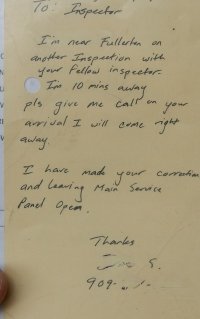 To: Inspector
I'm near Fullerton on
another Inspection with
your fellow inspector.
I'm 10 mins away
pls give me call on your
arrival I will come right
away.
I have made your correction
and leaving Main Service
Panel Open.
Thanks
S.
909-